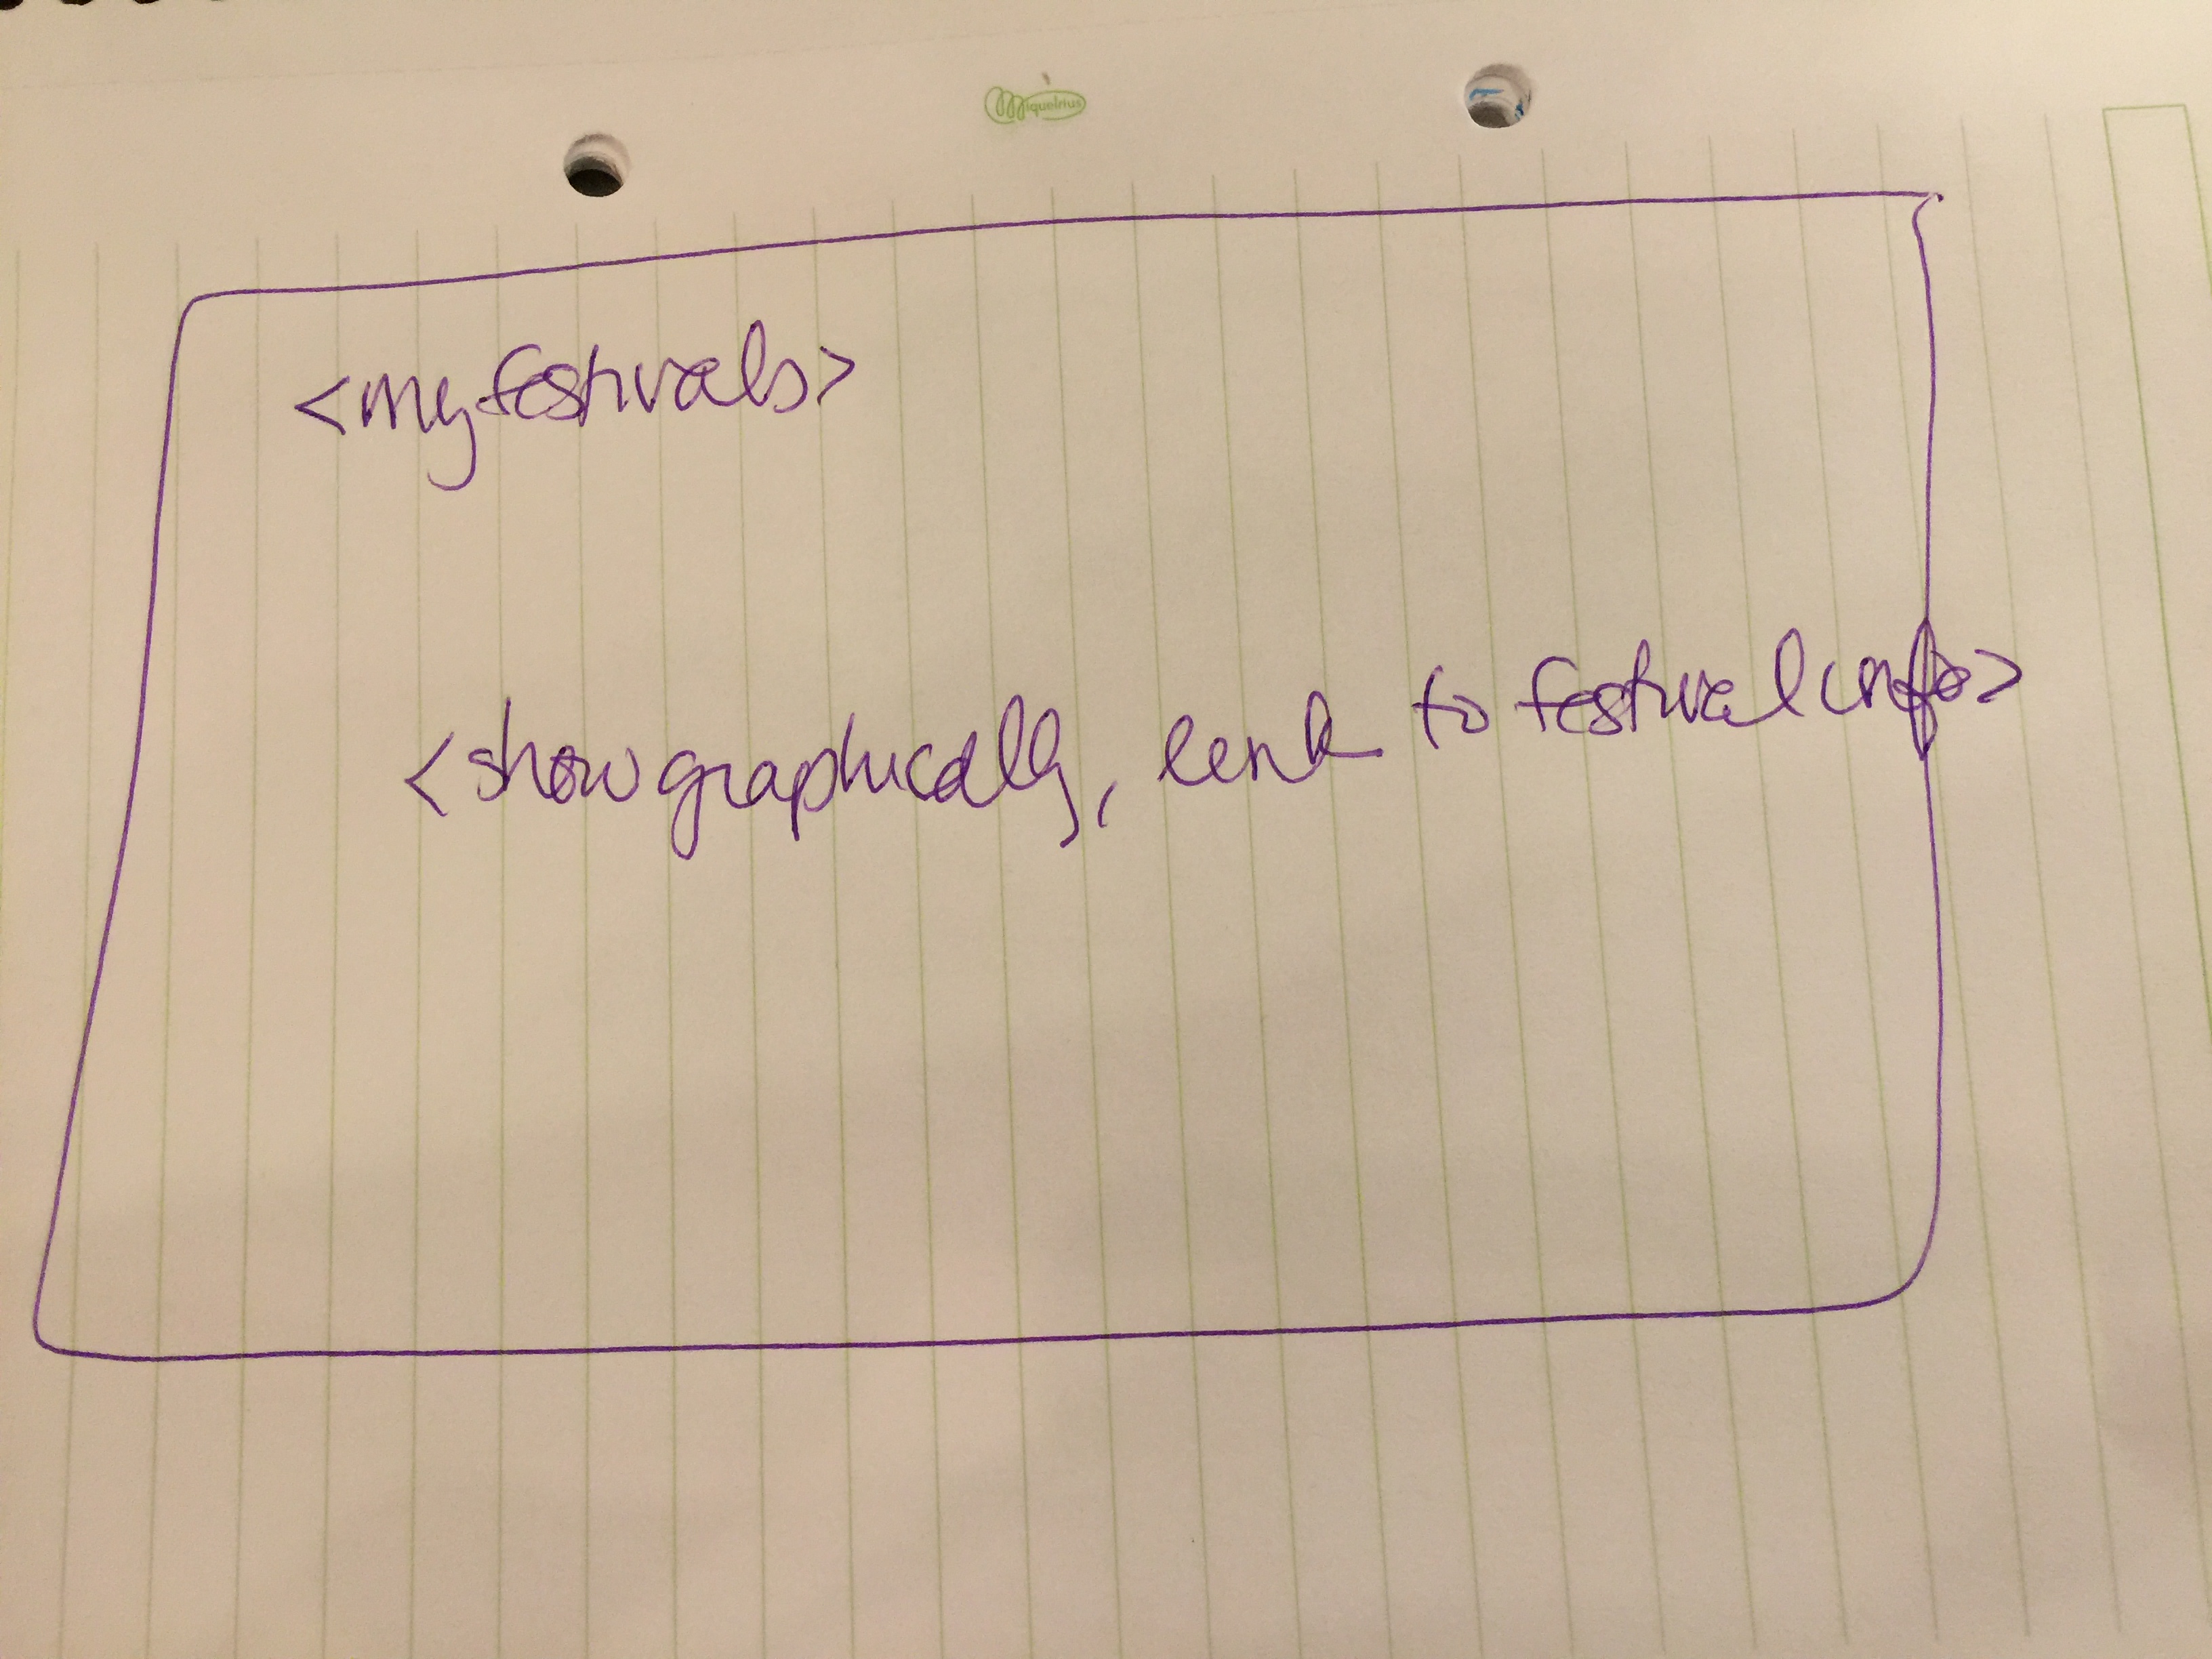 <my festivals>
<show graphically, link to festival info>
Miquelrius